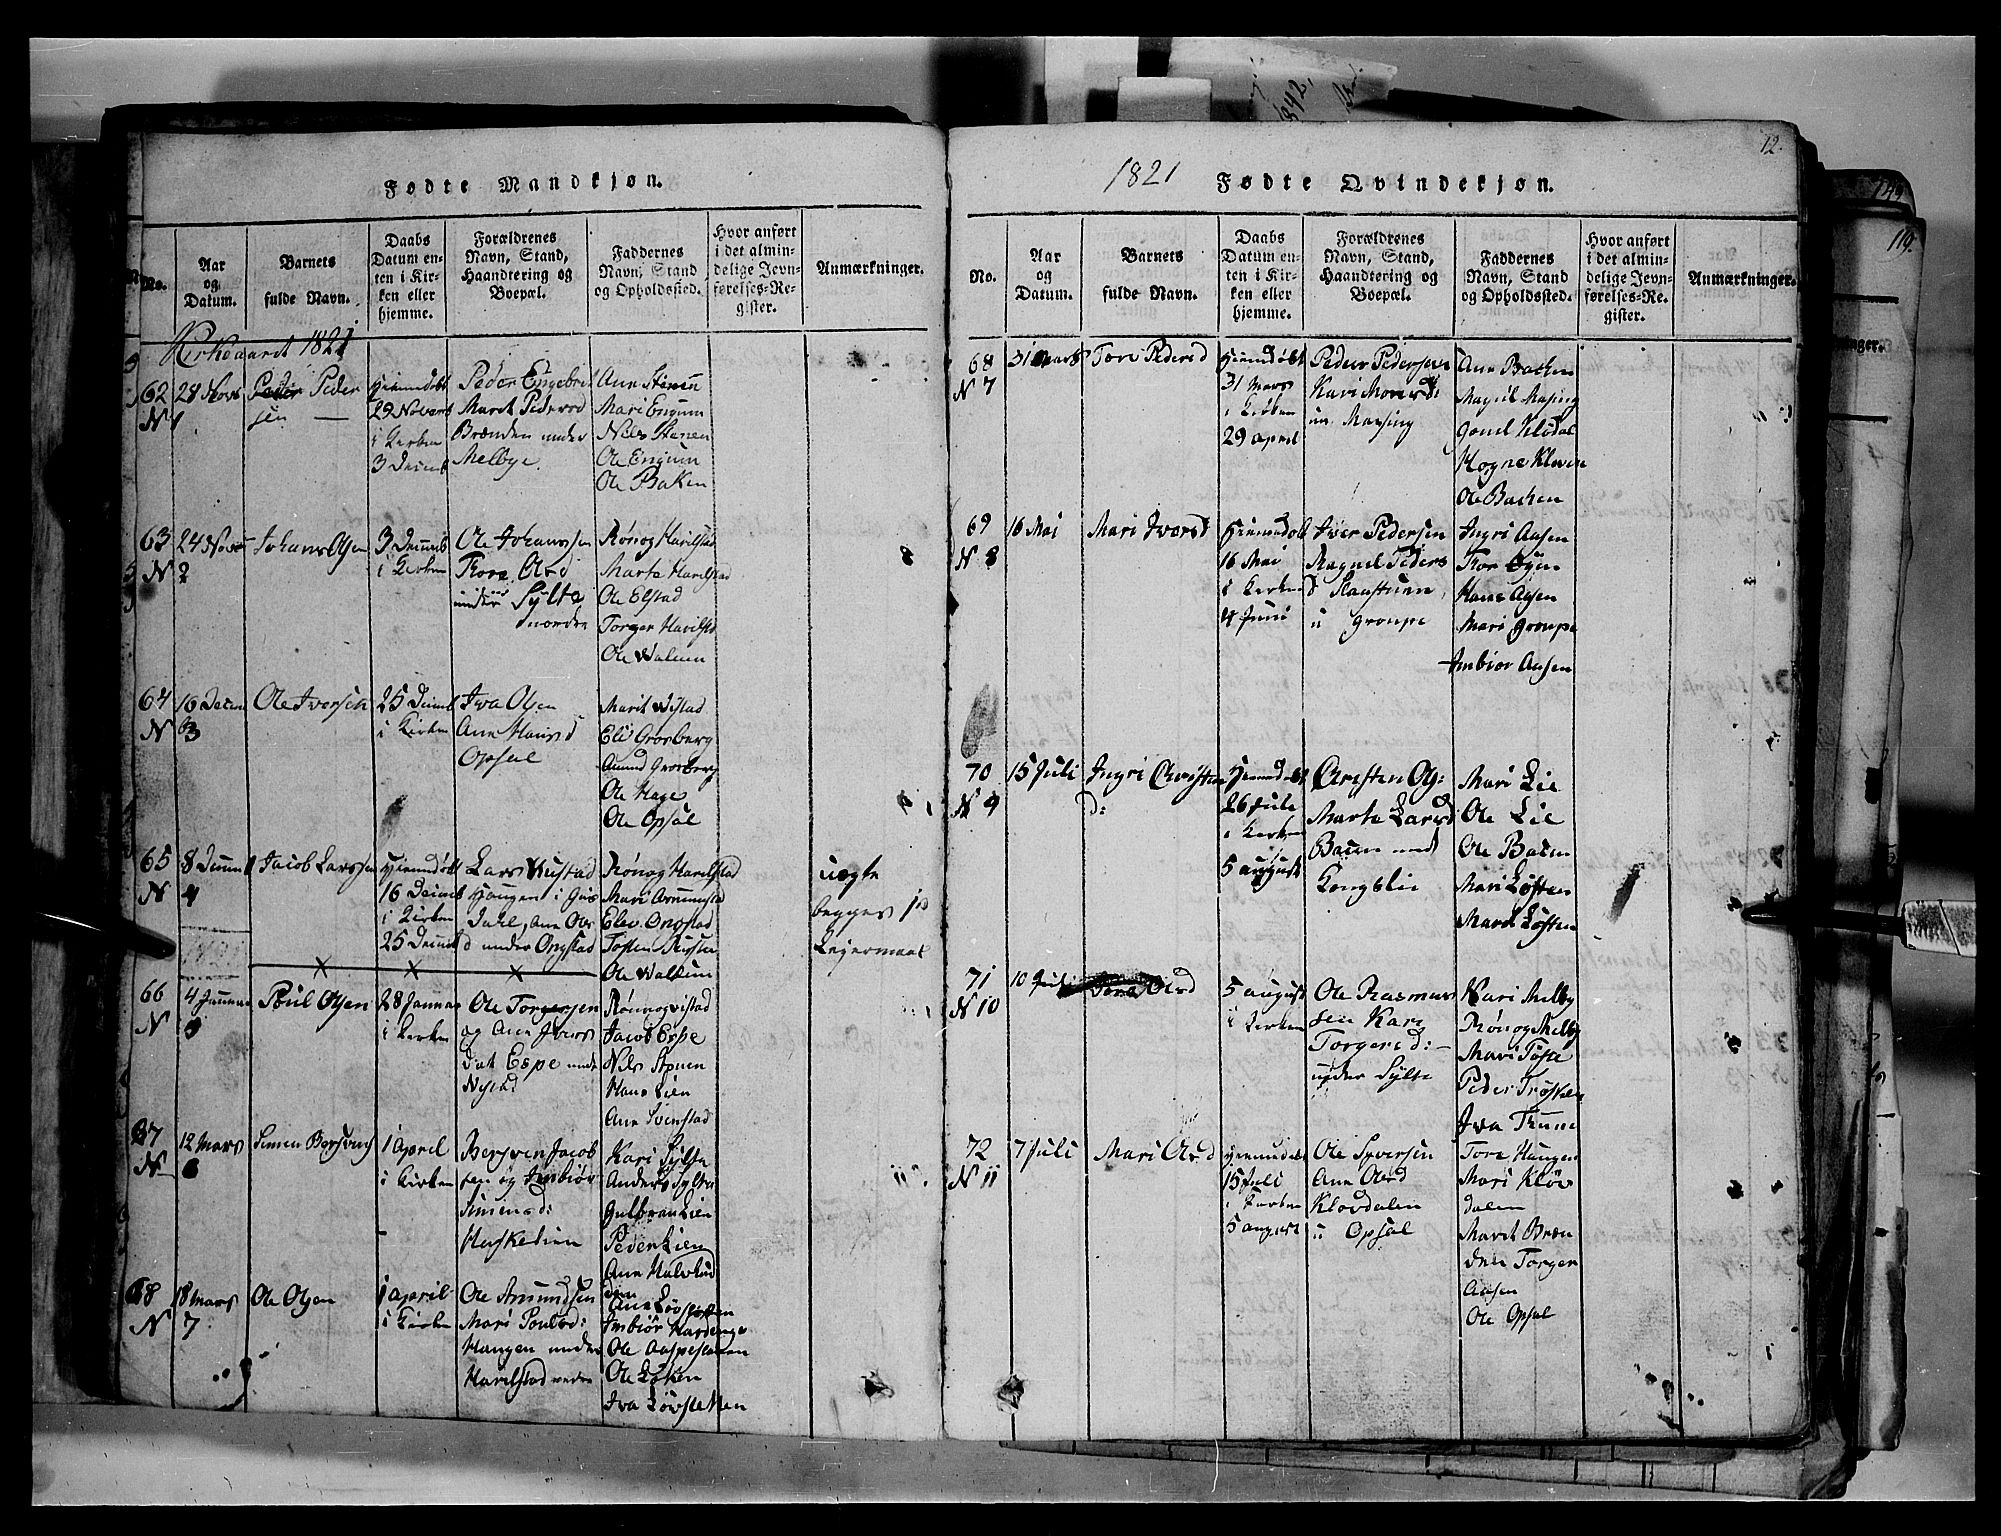 Fødte Mandkjøn.
No.
Aar og Datum.
Barnets fulde Navn.
Daabs Datum enten i Kirken eller hjemme.
Forældrenes Navn, Stand, Haandtering og Boepæl.
Faddernes Navn, Stand og Opholdssted.
Hvor anført i det almindelige Jevnførelses-Register.
Anmærkninger.
Kirkeaaret 1821
62
N 1
28 Novb
Peder Peder
sen
Hiemmedøbt
29 Novbr
i Kirken
3 Decemb
Peder Engebret
Marit Pedersd
Brænden under
Melbye.
Ane Stenen
Mari Engum
Niels Stenen
Ole Engum
Ole Baken
63
N 2
24 Novb
Johans Olsen
3 Decemb
i Kirken
Ole Johanssen
Thore Olsd
under Sylte
nordre
Rønog Harilstad
Marta Harilstad
Ole Elstad
Torger Harilstad
Ole Walum
64
N 3
16 Decem
Ole Iversen
25 Decemb
i Kirken
Iva Olsen
Ane Hansd
Opsal
Marit Wistad
Eli Grosberg
Amund Grosberg
Ole Hage
Ole Opsal
65
N 4
8 Decemb
Jacob Larssen
Hiemmedøbt
16 Decemb
i Kirken
25 Decemb
Lars Hustad
Haugen i Gus
Dahl, Ane Ols
d under Ongstad
Rønog Harilstad
Mari Arnumstad
Elev Ongstad
Tosten
Ole Walum
uegte
begges 1ste
Leiermaal
66
N 5
4 Januar
Poul Olsen
28 Januar
i Kirken
Ole Torgersen
og Ane Ivers
dat Espe under
Nystad
Rønnog Vistad
Jacob Espe
Niels Stenen
Hans Lien
Ane Svenstad
67
N 6
12 Mars
Simen Bersvens
1 April
i Kirken
Bersven Jacob
sen og Imbiør
Simensd:
Haskelien
Kari Sylte
Anders Sylte
Gulbran Lien
Peder Lien
Ane Halvlud
den
68
N 7
18 Mars
Ole Olsen
1 April
i Kirken
Ole Amundsen
Mari Poulsd:
Haugen under
Harilstad nedre
Ane Løvsletten
Imbiør Hardenge
Ole Aaspeslaaen
Ole Løken
Iva Løvsletten
12.
1821 Fødte Qvindekjøn.
No.
Aar og Datum.
Barnets fulde Navn.
Daabs Datum enten i Kirken eller hjemme.
Forældrenes Navn, Stand, Haandtering og Boepæl.
Faddernes Navn, Stand og Opholdssted.
Hvor anført i det almindelige Jevnførelses-Register.
Anmærkninger.
68
N 7
31 Mars
Tore Pedersd
Hiemmedøbt
31 Mars
i Kirken
29 April
Peder Pedersen
Kari Monsd:
un. Marsing
Ane Baken
Magnil Maping
Gonil Kledal
Rogne Kleven
Ole Baken
69
N 8
16 Mai
Mari Iversd
Hiemmedøbt
16 Mai
i Kirken
4 Juni
Iver Pedersen
Magnil Peders
d Haastuen
u Graupe
Ingri Aasen
Tor Øyen
Hans Aasen
Mari Groupe
Imbior Aasen
70
N 9
15 Juli
Ingri Christen
d:
Hiemmedøbt
26 Juli
i Kirken
5 August
Christen Ols:
Marta Larsd
Baken under
Kongslie
Mari Lie
Ole Lie
Ole Baken
Mari Løften
Marit Løften
71
N 10
10 Juli
Tora Olsd
5 August
i Kirken
Ole Rasmus
sen Kari
Torgersd:
under Sylte
Kari Melby
Rønog Melby
Mari Tofte
Peder Trosten
Iva Thune
72
N 11
7 Juli
Mari Olsd
Hiemmedøbt
15 Juli
i Kirken
5 August
Ole Syversen
Ane Olsd
Kløvdalen
u Opsal
Tore Haugen
Mari Kløv
dalen
Marit Bræn
den Torger
Aasen
Ole Opsal
149.
119.
842,